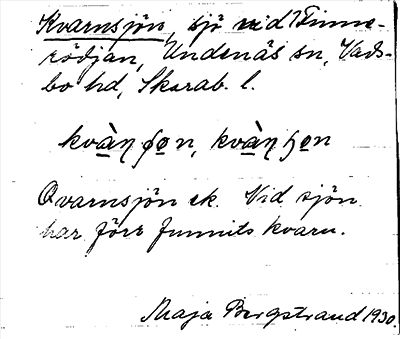 Kvarnsjön, sjö vid Finne-
rödjan, Undenäs sn, Vads-
bo hd, Skarab. l.
kvàŋ ʃøn, kvàŋ høn
Qvarnsjön ek. Vid sjön
har förr funnits kvarn.
Maja Bergstrand 1930.